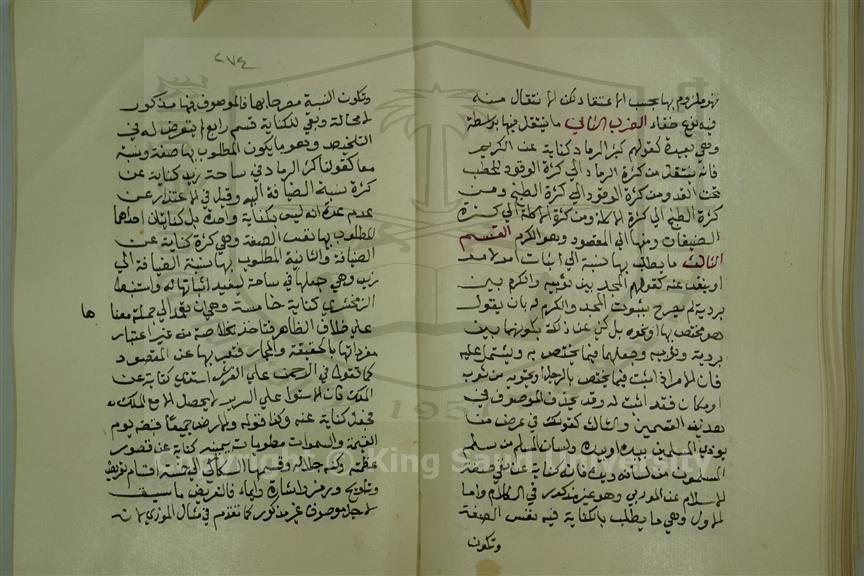 فهو ملزوم بها بحسب الاعتقاد لكن الانتقال منه
فيه نوع خفاء الضرب الثاني ما ينتقل فيها بواسطة
وهي بعيدة كقولهم كثير الرماد كناية عن الكريم
فانه ينتقل من كثرة الرماد الى كثرة الوقود للحطب
تحت القدر ومن كثرة الوقود الى كثرة الطبخ ومن
كثرة الطبخ الى كثرة الاكلة ومن كثرة الاكلة الى كثرة
الضيفان ومنها الى المقصود وهو الكرم القسم
الثالث ما يطلب بها نسبة اي اثبات امر لامر
او نفيه عنه كقولهم المجد بين ثوبيه والكرم بين
بردية لم يصرح بثبوت المجد والكرم له بان يقول
هو مختص بها او نحوه بل كنى عن ذلك بكونهما بين
بردية وثوبيه وجعلها فيما يختص به ويشتمل عليه
فان الامر اذا اثبت فيما يختص بالرجل ويحويه من ثوب
او مكان فقد اثبت له وقد يحذف الموصوف في
هذين القسمين والثالث كقولك في عرض من
يوذي المسلمين بيده او يده ولسان المسلم من سلم
المسلمون من لسانه ويده فانه كناية عن نفي صفة
الاسلام عن الموذي وهو غير مذكور في الكلام واما
الاول وهي ما يطلب بالكناية فيه نفس الصفة
وتكون
٢٧٤
وتكون النسبة مصرحا بها فالموصوف فيها مذكور
لا محالة وبقي للكناية قسم رابع لم يتعرض له في
التلخيص وهو ما يكون المطلوب بها صفة ونسبة
معا كقولنا كثر الرماد في ساحة زيد كناية عن
كثرة نسبة الضيافة اليه وقيل في الاعتذار عن
عدم عده انه ليس بكناية واحدة بل كنايتان احداهما
المطلوب بها نفس الصفة وهي كثرة كناية عن
الضيافة والثانية المطلوب بها نسبة الضيافة الى
زيد وهي جعلها في ساحة ليفيد اثباتها له واستنبط
الزمخشري كناية خامسة وهي ان تعمد الى جملة معنا
ها
على خلاف الظاهر فتاخذ الخلاصة من غير اعتبار
مفرداتها بالحقيقة والمجاز فتعبر بها عن المقصود
كما تقول في الرحمن على العرش استوى كناية عن
الملك فان الاستوا على السرير لا يحصل الا مع الملك
فجعل كناية عنه وكذا قوله والارض جميعا قبضته يوم
القيمة والسموات مطويات بيمينه كناية عن تصور
عظمته وكنه جلاله وقسمها السكاكي الى خمسة اقسام تعريض
وتلويح ورمز واشارة وايماء فالتعريض ما سيق
لاجل موصوف غير مذكور كما تقدم في مثال الموذي لانه
Copyright © King Saud University
1957